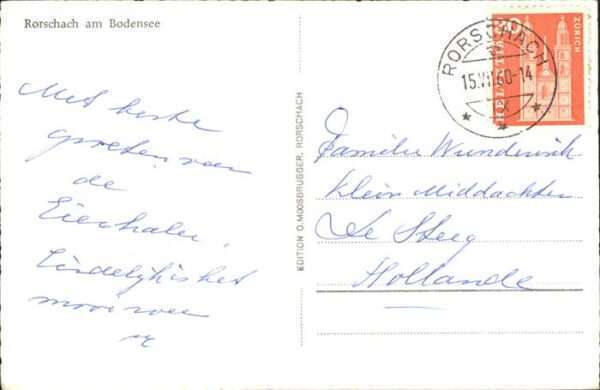 Rorschach am Bodensee
Met beste
groeten van
de
Eierhalen,
Eindelijk is het
mooi weer
EDITION O. MOOSBRUGGER, RORSCHACH
RORSCHACH
15.VII.60-14
HELVETIA
ZÜRICH
Familie Wunderink
Klein Middachten
De Steeg
Hollande